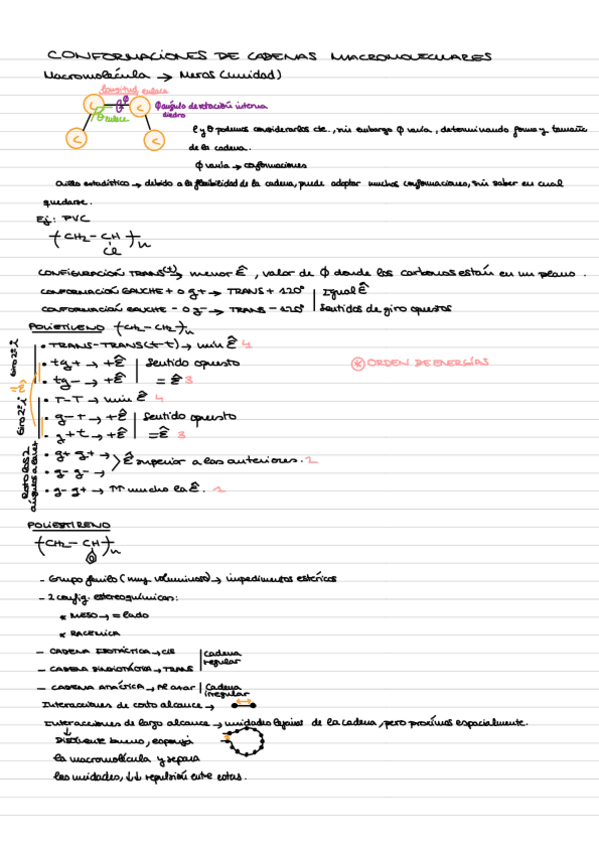 CONFORMACIONES DE CADENAS MACROMOLECULARES
Macromolécula → Meros (unidad)
longitud enlace
C C ϕ ϕ ángulo de rotación interna
θ enlace diedro
C C
l y θ podemos considerarlos cte., sin embargo ϕ varía, determinando forma y tamaño
de la cadena.
ϕ varía → conformaciones
Ovillo estadístico → debido a la flexibilidad de la cadena, puede adoptar muchas conformaciones, sin saber en cual
quedarse.
Ej: PVC
-(CH2-CH)-n
Cl
CONFIGURACIÓN TRANS(t) → menor Ê, valor de ϕ donde los carbonos están en un plano.
CONFORMACIÓN GAUCHE + o g+ → TRANS + 120° | Igual Ê
CONFORMACIÓN GAUCHE - o g- → TRANS - 120° | Sentidos de giro opuestos
POLIETILENO -(CH2-CH2)-n
• TRANS-TRANS (t-t) → min Ê 4
• tg+ → +Ê | Sentido opuesto
* ORDEN DE ENERGÍAS
• tg- → +Ê | = Ê 3
• T-T → min Ê 4
• g-t → +Ê | Sentido opuesto
• g+t → +Ê | = Ê 3
• g+ g+ →
• g- g- → > Ê superior a las anteriores. 2
• g- g+ → ↑↑ mucho la Ê. 1
Giro 2º i
Giro 2º i
Roto los 2
ángulos a la vez
POLIESTIRENO
-(CH2-CH)-n
- Grupo fenilo (muy voluminoso) → impedimentos estéricos
- 2 config. estereoquímicas:
* MESO → = lado
* RACEMICA
- CADENA ISOTÁCTICA → CIS | Cadena
regular
- CADENA SINDIOTÁCTICA → TRANS
- CADENA ATÁCTICA → Al azar | Cadena
irregular
Interacciones de corto alcance →
Interacciones de largo alcance → unidades lejanas de la cadena, pero próximas espacialmente.
↓
Disolvente bueno, esponja
la macromolécula y separa
las unidades, ↓↓ repulsión entre estas.